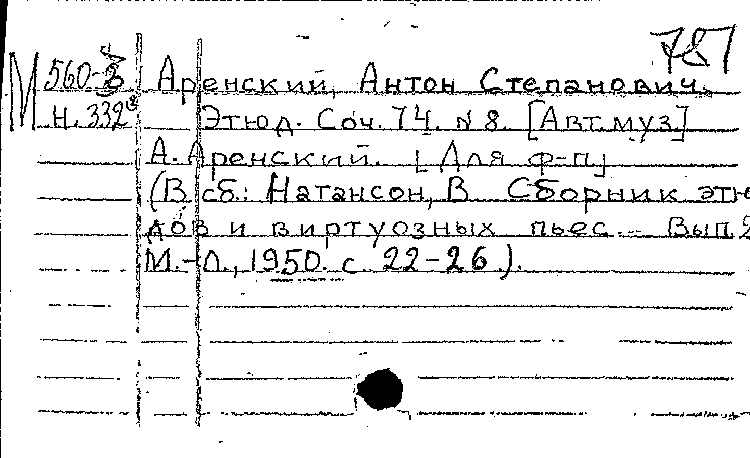 787
М 560-3 Аренский, Антон Степанович.
Н. 332 Этюд. Соч. 74. N 8. [Авт. муз.]
А. Аренский. [Для ф-п]
(В сб.: Натансон, В. Сборник этю
дов и виртуозных пьес. Вып. 2
М.-Л., 1950. с. 22-26).